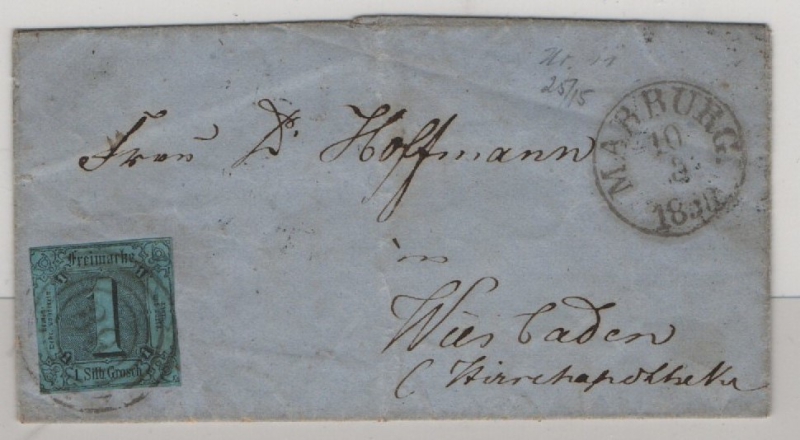 25/15
MARBURG
10
3
Frau D. Hoffmann
in
Wiesbaden
(Hirschapotheke
Freimarke
1
1 Silb. Grosch.